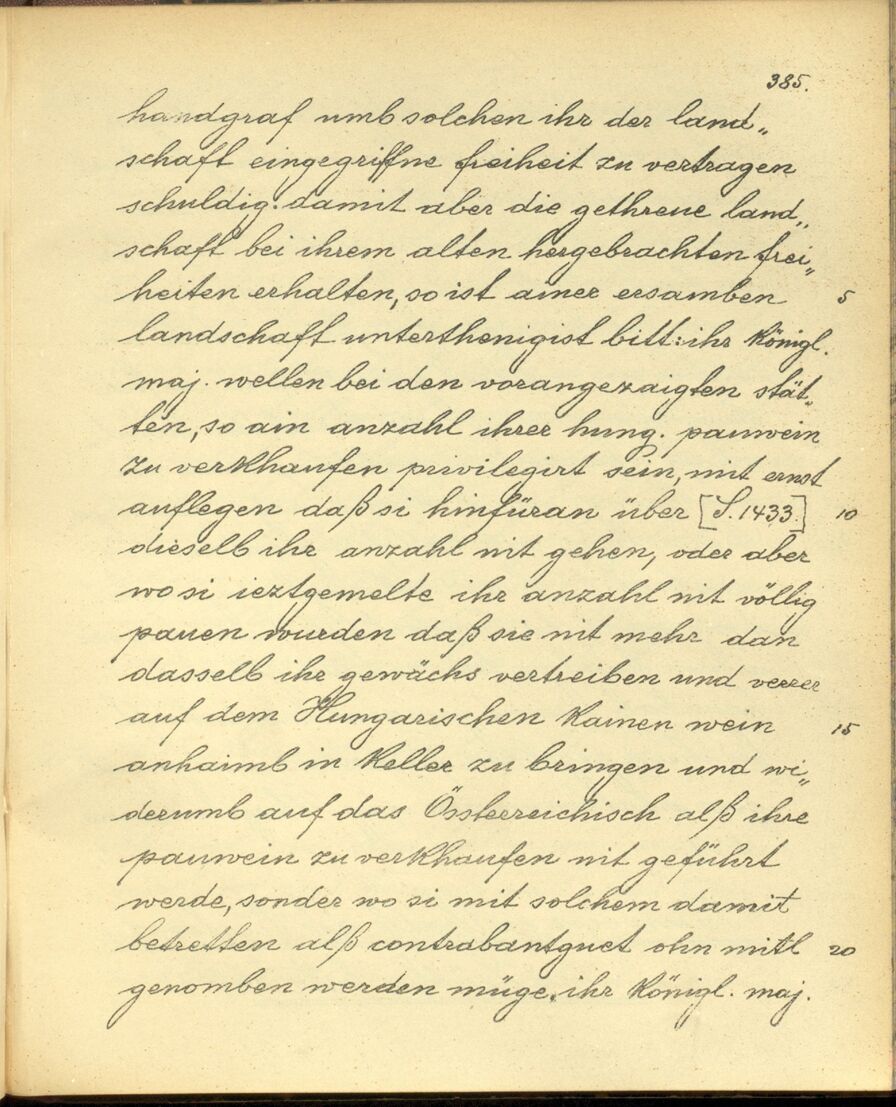 385.
handgraf umb solchen ihr der land„
schaft eingegriffne freiheit zu vertragen
schuldig. damit aber die gethreue land„
schaft bei ihrem alten hergebrachten frei„
heiten erhalten, so ist ainer ersamben 5
landschaft unterthenigist bitt: ihr königl.
maj. wellen bei den vorangezaigten stät„
ten, so ain anzahl ihrer hung. pauwein
zu verkhaufen privilegirt sein, mit ernst
auflegen daß si hinfüran über [S. 1433.] 10
dieselb ihr anzahl nit gehen, oder aber
wo si ieztgemelte ihr anzahl nit völlig
pauen wurden daß sie nit mehr dan
dasselb ihr gewächs vertreiben und verrer
auf dem Hungarischen kainen wein 15
anhaimb in keller zu bringen und wi„
derumb auf das Össterreichisch alß ihre
pauwein zu verkhaufen nit geführt
werde, sonder wo si mit solchem damit
betretten alß contrabantguet ohn mitl 20
genomben werden müge. ihr königl. maj.